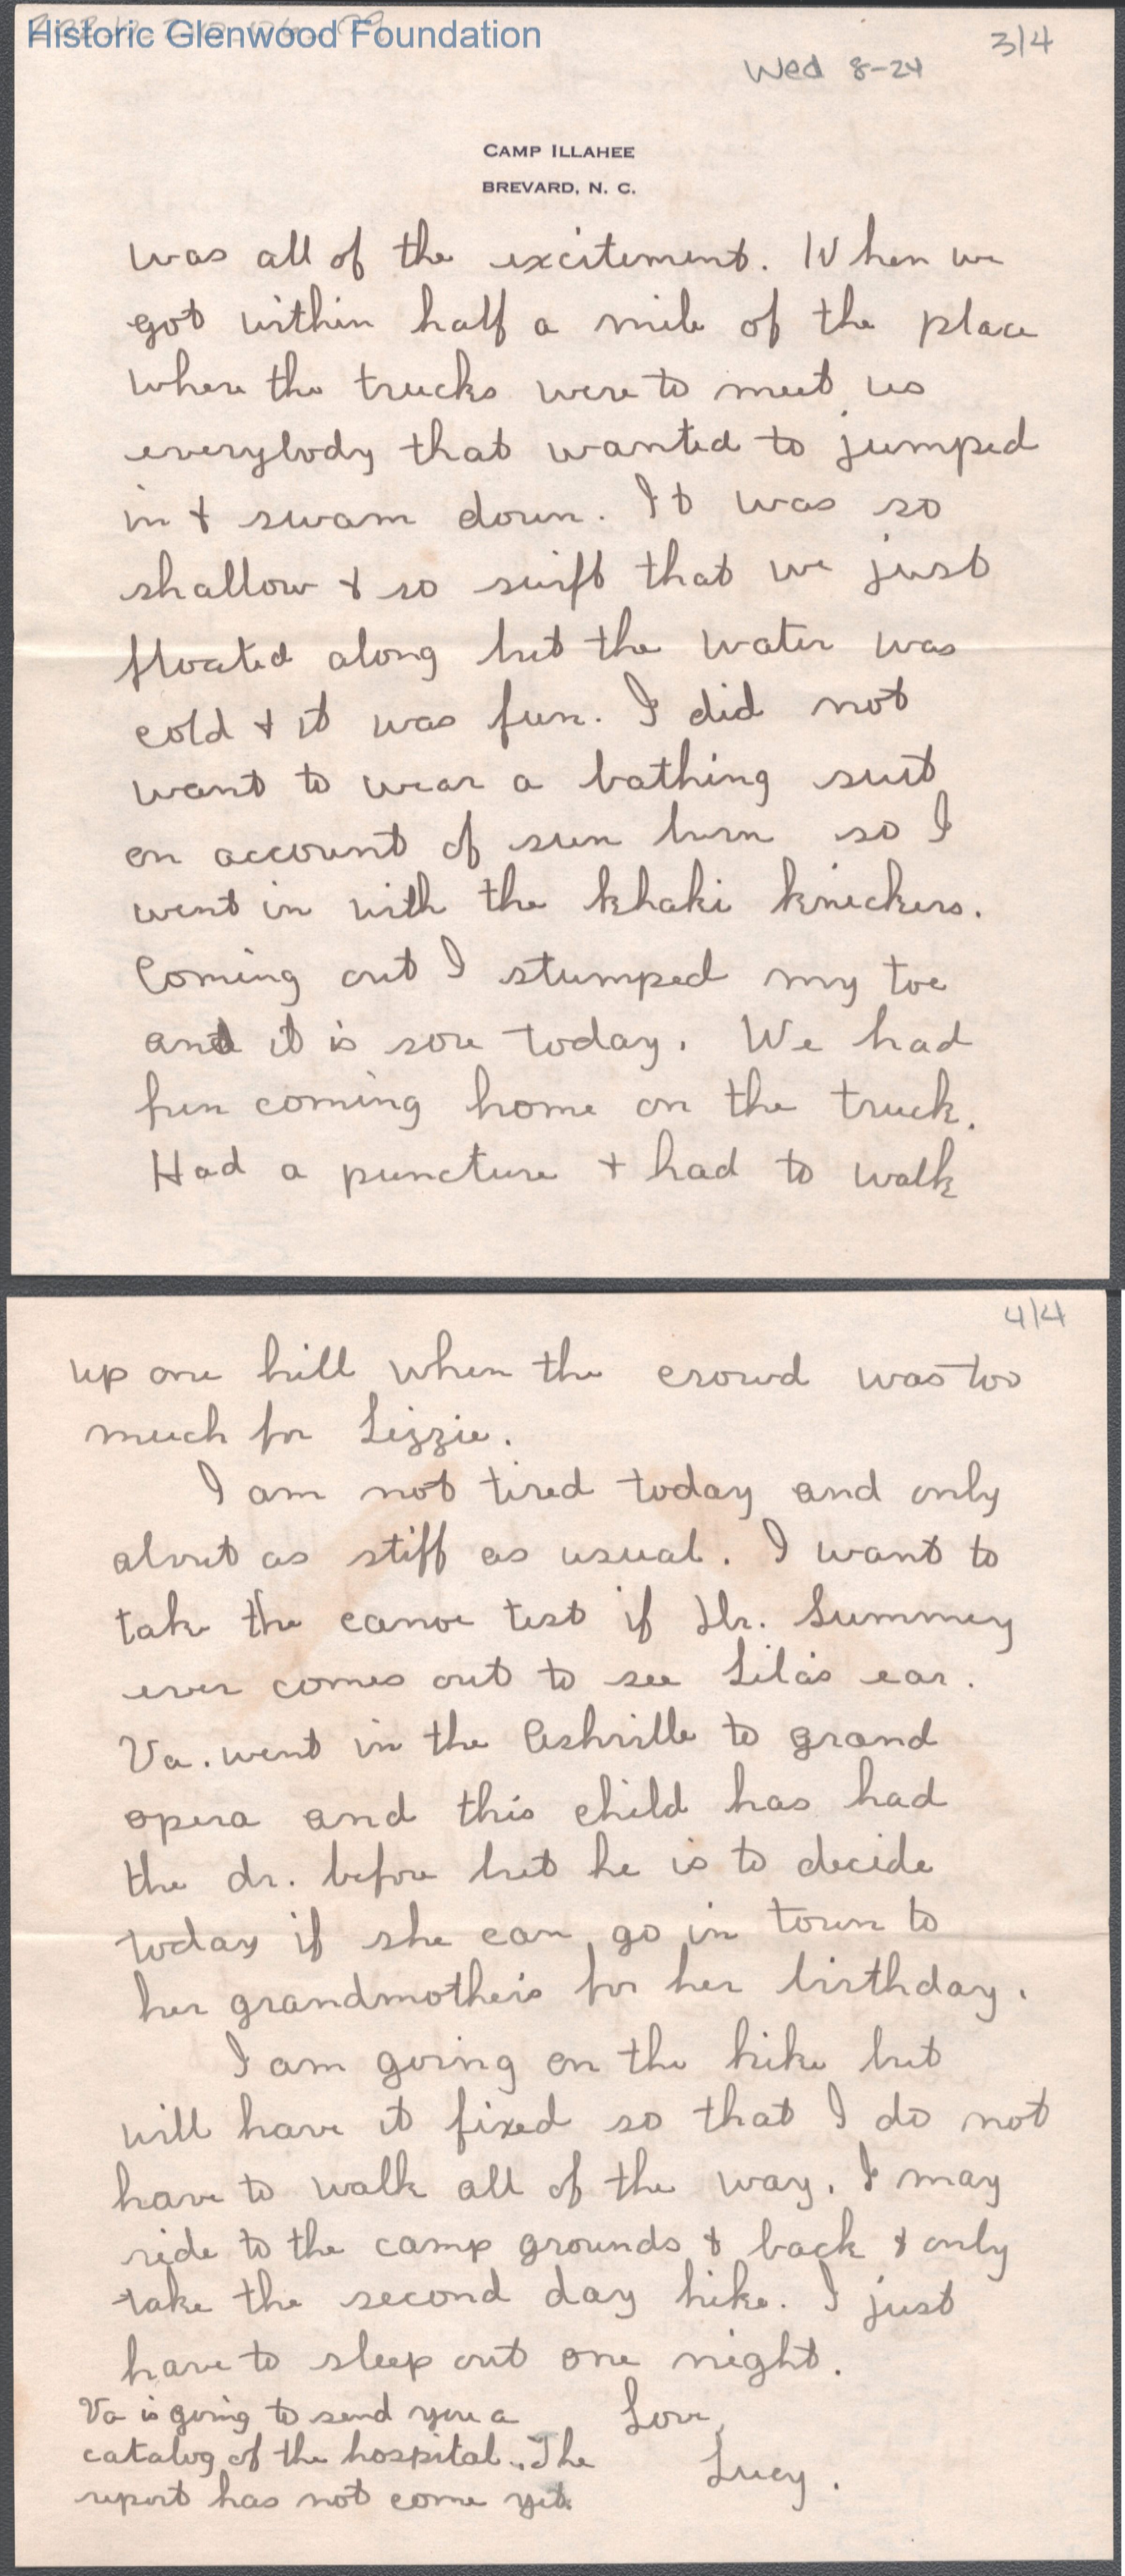 Historic Glenwood Foundation
3/4
Wed 8-24
CAMP ILLAHEE
BREVARD, N. C.
was all of the excitement. When we
got within half a mile of the place
where the trucks were to meet us
everybody that wanted to jumped
in + swam down. It was so
shallow + so swift that we just
floated along but the water was
cold + it was fun. I did not
want to wear a bathing suit
on account of sun burn so I
went in with the khaki knickers.
Coming out I stumped my toe
and it is sore today. We had
fun coming home on the truck.
Had a puncture + had to walk
4/4
up one hill when the crowd was too
much for Lizzie.
I am not tired today and only
about as stiff as usual. I want to
take the canoe test if Dr. Summey
ever comes out to see Lila's ear.
Va. went in the Ashville to grand
opera and this child has had
the dr. before but he is to decide
today if she can go in town to
her grandmother's for her birthday.
I am going on the hike but
will have it fixed so that I do not
have to walk all of the way. I may
ride to the camp grounds + back + only
take the second day hike. I just
have to sleep out one night.
Love,
Lucy.
Va is going to send you a
catalog of the hospital. The
report has not come yet.